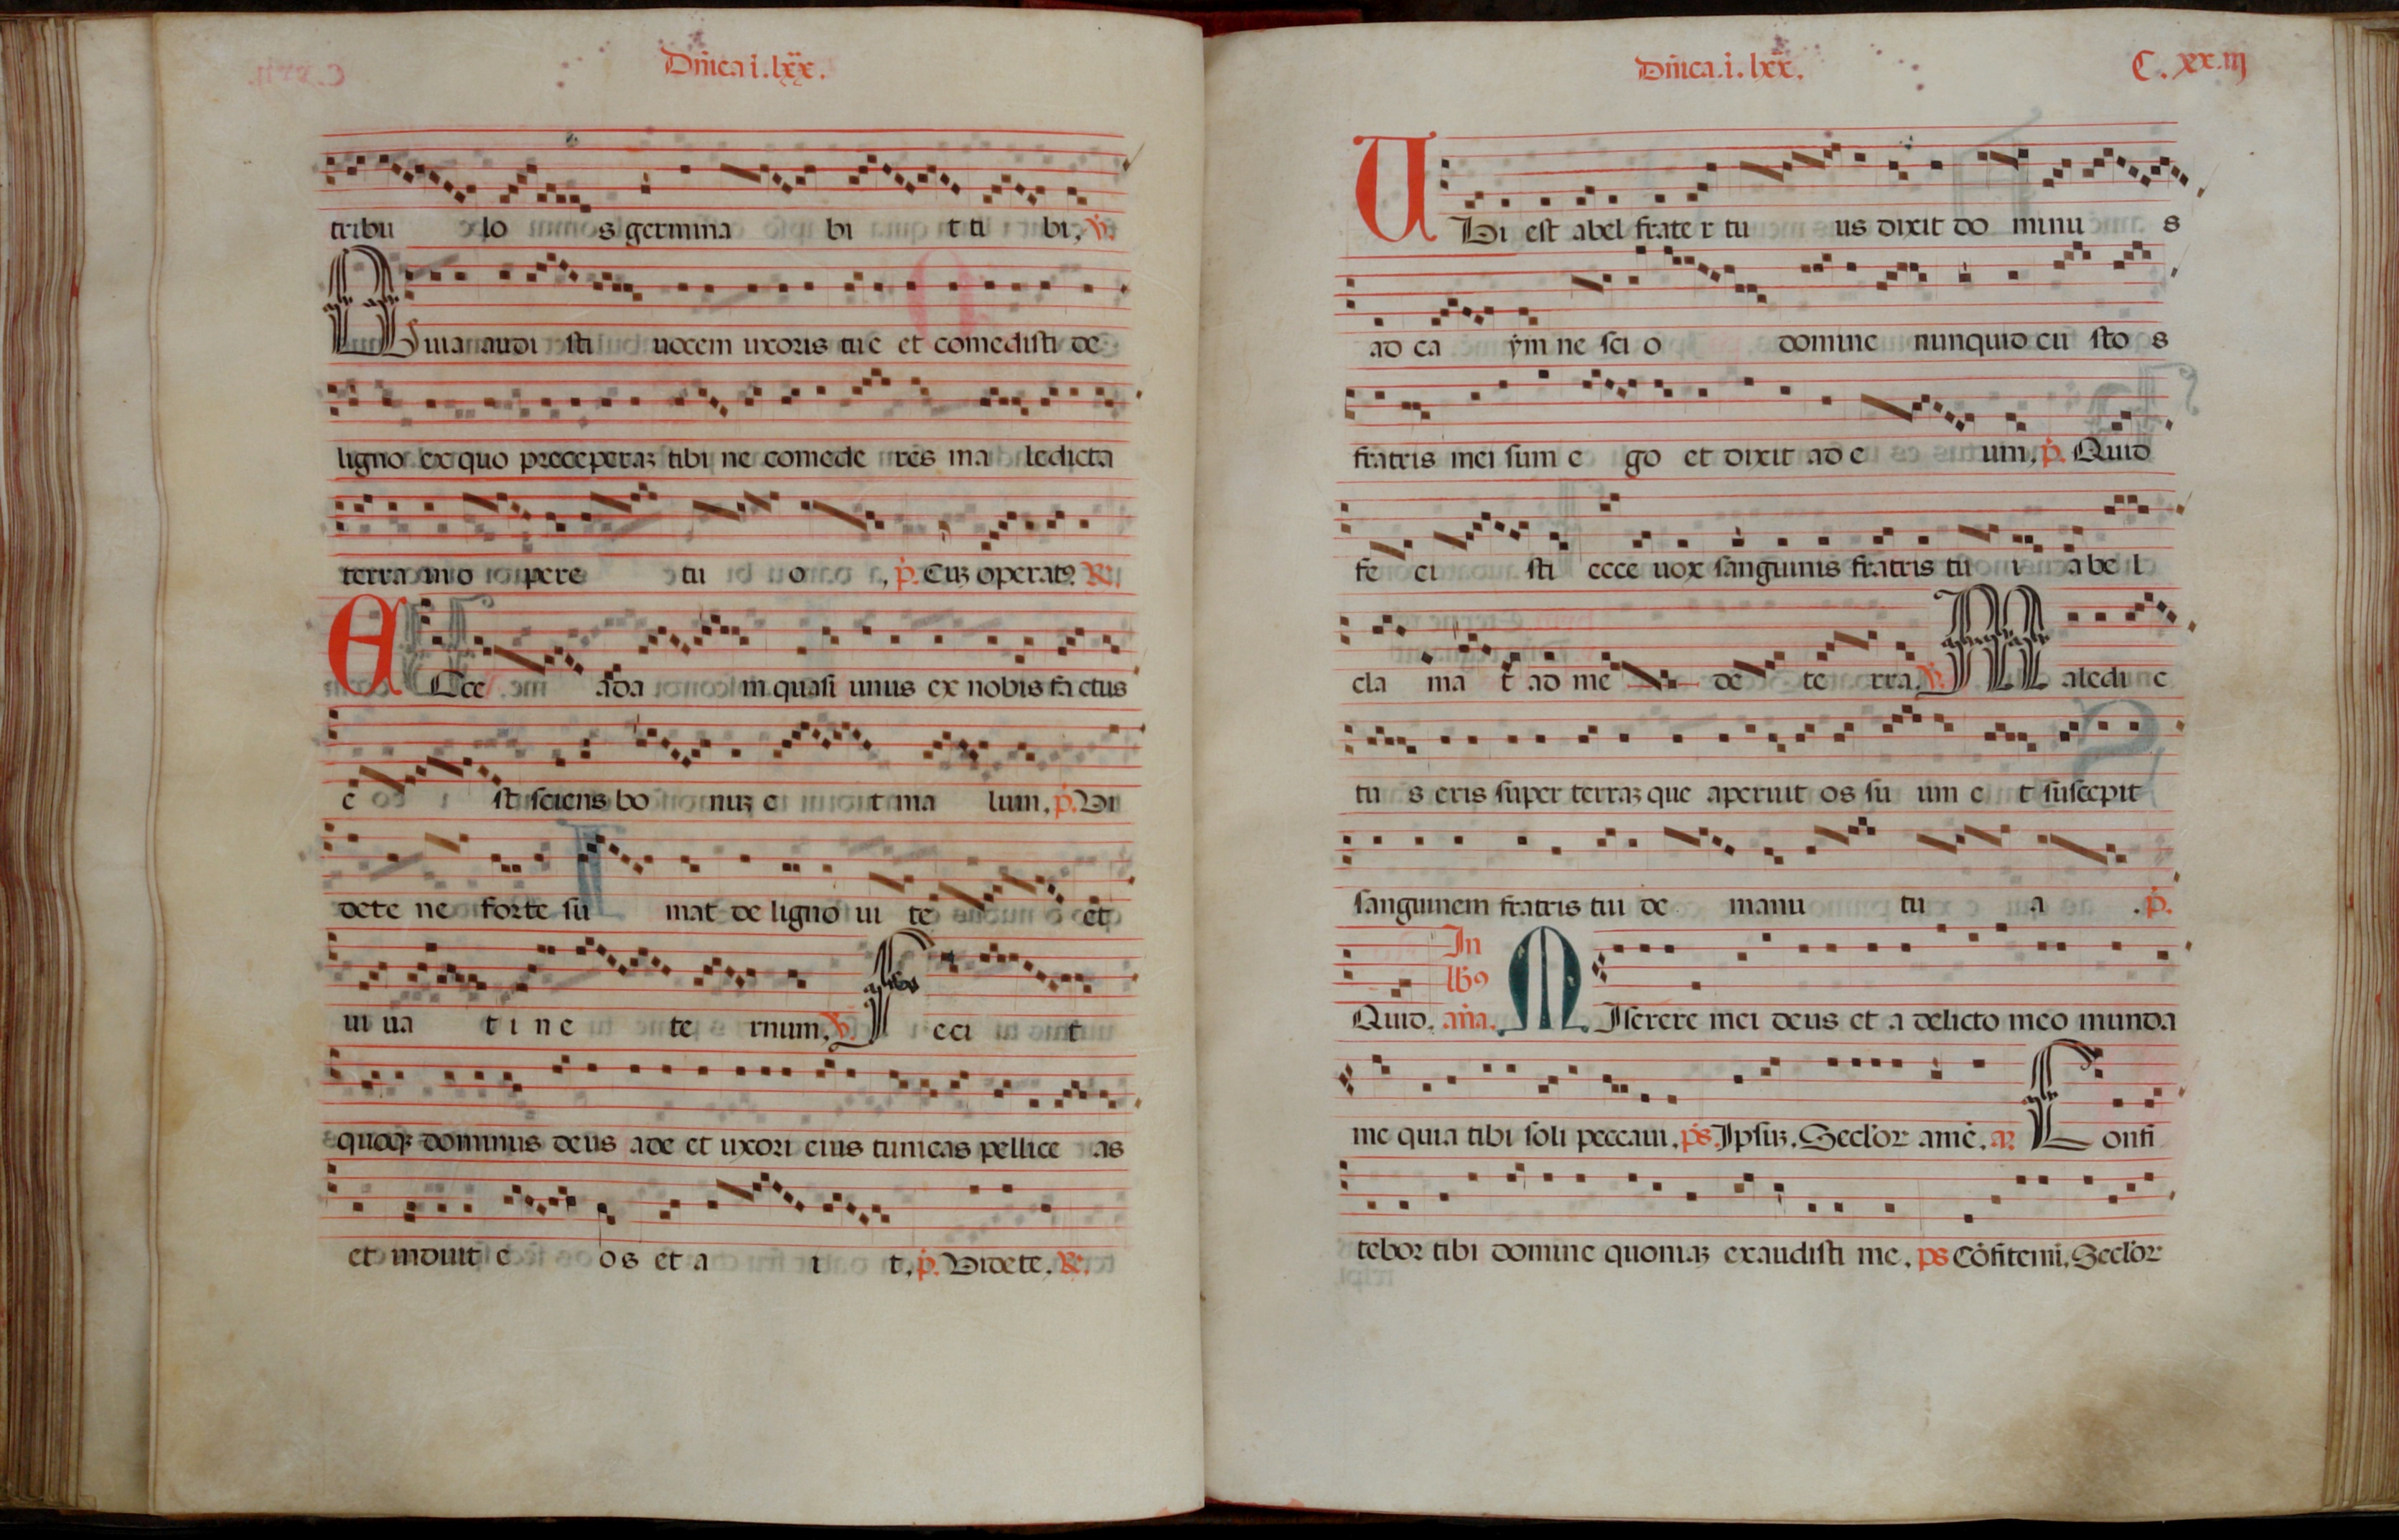 Dn̄ica i. lxx.
tribu lo s germina bi t ti bi, ꝟ.
Quia audi sti uocem uxoris tue et comedisti de
ligno ex quo preceperaꝫ tibi ne comede res ma ledicta
terra in o pere tu o , p̄. Cuꝫ operatꝰ. ℟.
ECce ada m quasi unus ex nobis fa ctus
e st sciens bo nuꝫ e t ma lum, p̄. Vi
dete ne forte su mat de ligno ui te et
ui ua t i n e te rnum, ꝟ. F eci t
quoqꝫ dominus deus ade et uxori eius tunicas pellice as
et induit e os et a i t, p̄. Videte. ℟.
Dn̄ica. i. lxx.
C. xx. iij
UBi est abel frate r tu us dixit do minu s
ad ca ẏm ne sci o domine nunquid cu sto s
fratris mei sum e go et dixit ad e um, p̄. Quid
fe ci sti ecce uox sanguinis fratris tu i a be l
cla ma t ad me de te rra, ꝟ. M aledi c
tu s eris super terraꝫ que aperuit os su um e t suscepit
sanguinem fratris tui de manu tu a . p̄.
In
lb̄ꝰ
Quid. an̄a. MIserere mei deus et a delicto meo munda
me quia tibi soli peccaui. ps̄. Ipsuꝫ. Secl'or ame. a. Confi
tebor tibi domine quoniaꝫ exaudisti me. ps Cōfitemi. Secl'or